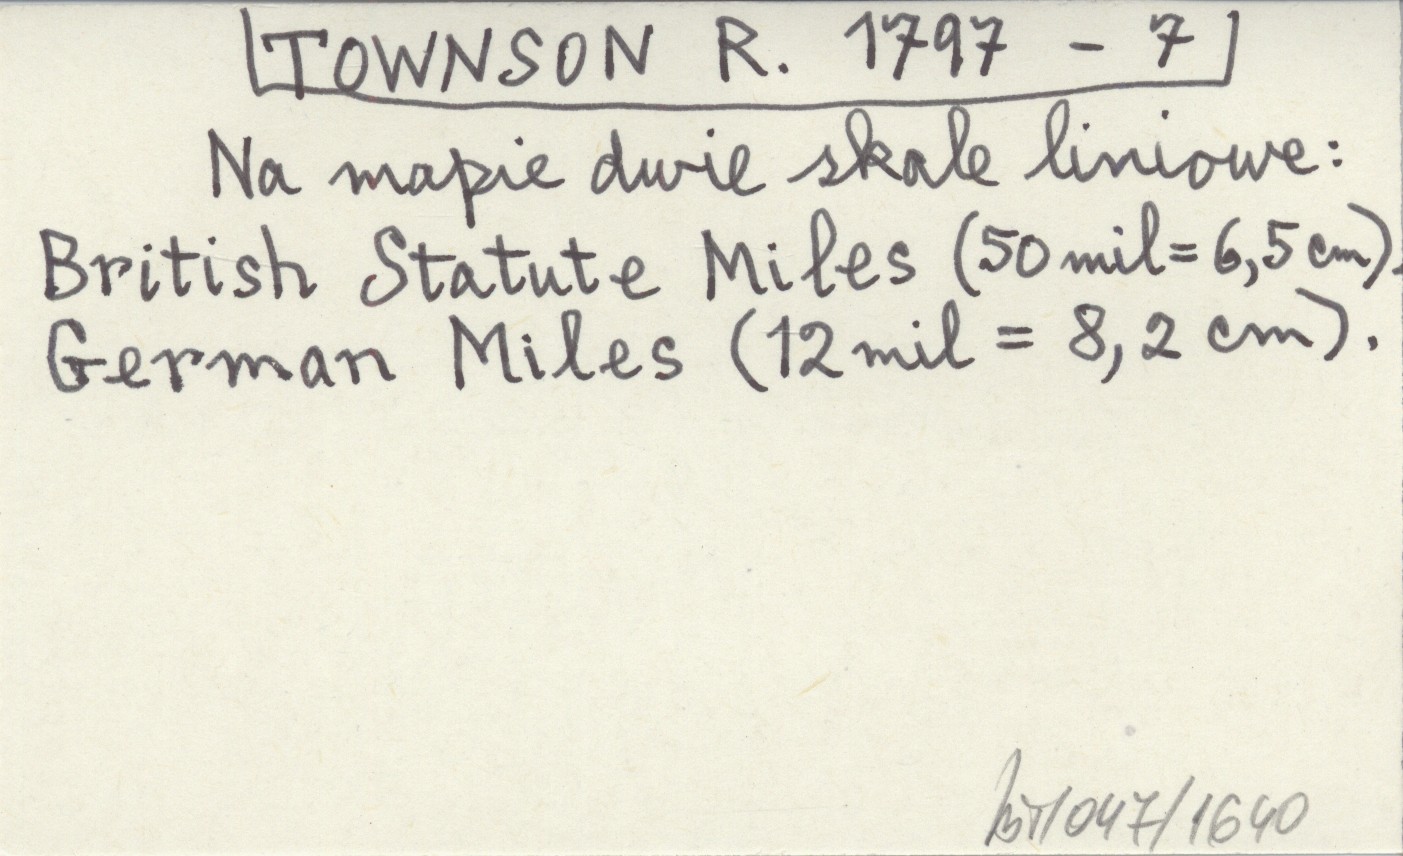 TOWNSON R. 1797 - 7
Na mapie dwie skale liniowe:
British Statute Miles (50 mil = 6,5 cm).
German Miles (12 mil = 8,2 cm).
/047/1640